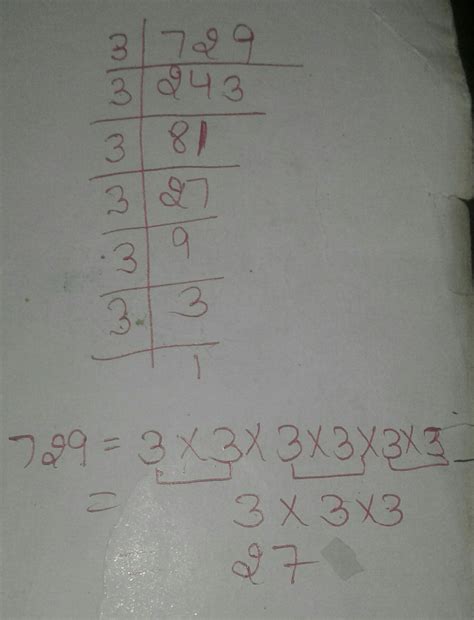 3 | 729
3 | 243
3 | 81
3 | 27
3 | 9
3 | 3
1
729 = 3 × 3 × 3 × 3 × 3 × 3
= 3 × 3 × 3
27